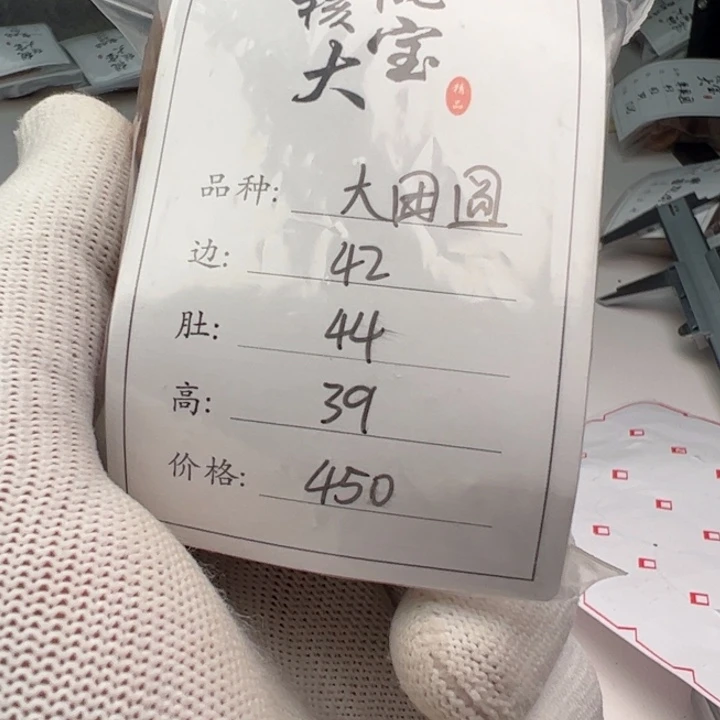 核
大
宝
精品
品种: 大团圆
边: 42
肚: 44
高: 39
价格: 450